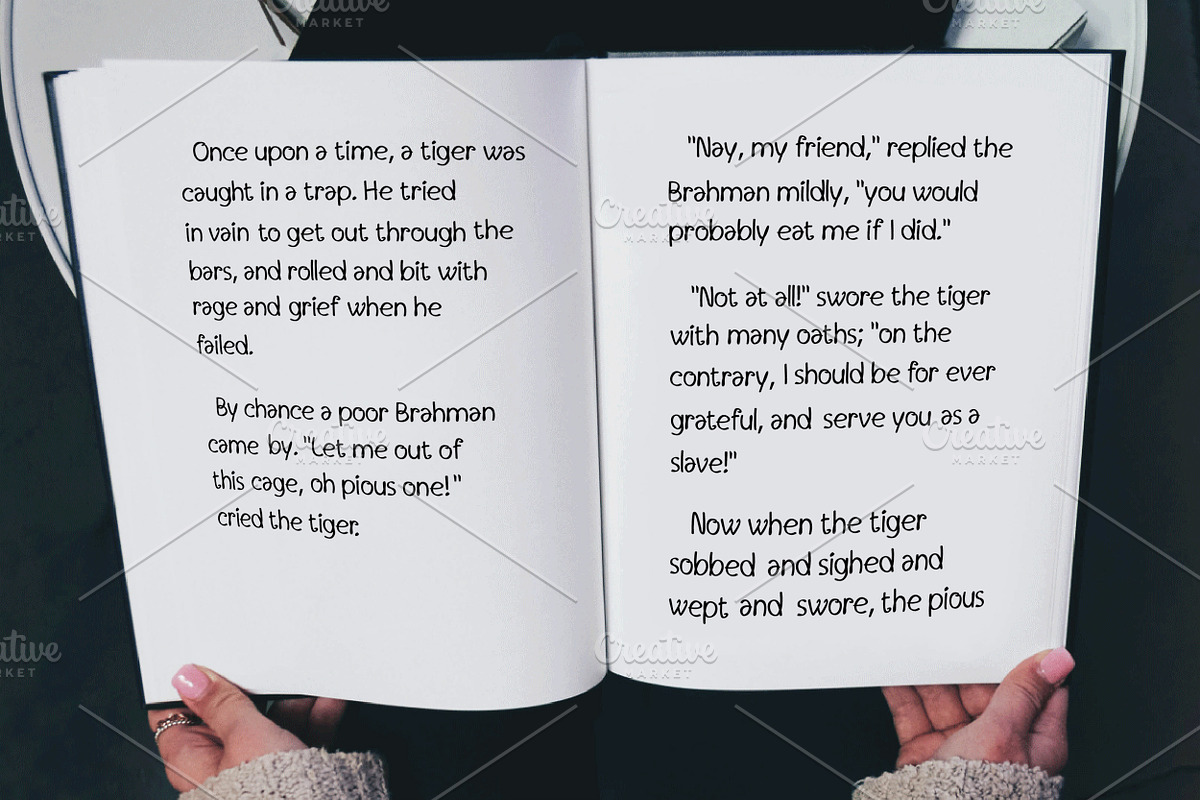 Once upon a time, a tiger was
caught in a trap. He tried
in vain to get out through the
bars, and rolled and bit with
rage and grief when he
failed.
By chance a poor Brahman
came by. "Let me out of
this cage, oh pious one!"
cried the tiger.
"Nay, my friend," replied the
Brahman mildly, "you would
probably eat me if I did."
"Not at all!" swore the tiger
with many oaths; "on the
contrary, I should be for ever
grateful, and serve you as a
slave!"
Now when the tiger
sobbed and sighed and
wept and swore, the pious
Creative
MARKET
Creative
MARKET
Creative
MARKET
Creative
MARKET
Creative
MARKET
Creative
MARKET
Creative
MARKET